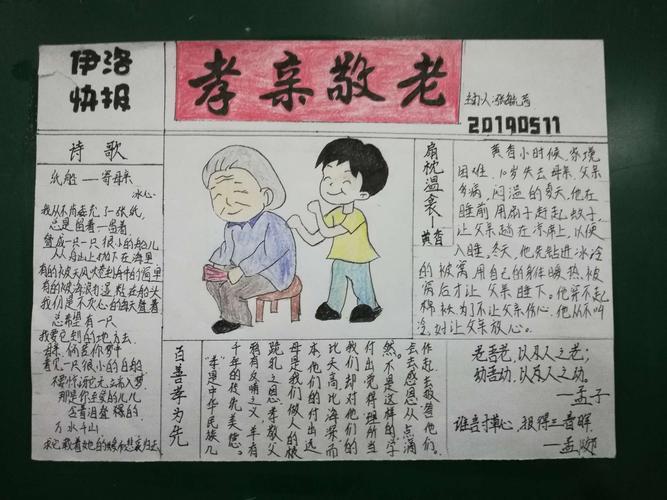 伊洛
快报
孝亲敬老
主办人:张毓芮
20190511
诗歌
纸船——寄母亲
冰心
我从不肯妄弃了一张纸,
总是留着——留着
叠成一只一只很小的船儿
从舟上抛下在海里
有的被天风吹卷到舟中的窗里
有的被海浪打湿粘在船头
我仍是不灰心的每天叠着
总希望有一只
我要它到的地方去.
母亲,倘若你梦中
看见一只很小的白船
不要惊讶它无端入梦,
那是你至爱的儿
含着泪叠的
万水千山
求它载着她的爱和悲哀归去.
扇枕温衾
——黄香
黄香小时候,家境
困难,10岁失去母亲,父亲
多病,闷温的夏天,他在
睡前用扇子赶走蚊子,
让父亲躺在凉席上,以便
入睡,冬天,他先钻进冰冷
的被窝用自己的身体暖热被
窝后才让父亲睡下。他穿不起
棉袄,为了不让父亲伤心,他从不叫
冷,对让父亲放心。
百善孝为先
“孝”是中华民族几
千年的传统美德.
鸦有反哺之义,羊有
跪乳之恩,孝敬父
母是我们做人的根
本,他们的付出远
比天高,比海深,而
我们却对他们的
付出觉得理所当
然,不是这样的,学
会去感恩,从点滴
作起去敬爱他们.
老吾老,以及人之老;
幼吾幼,以及人之幼.
——孟子
谁言寸草心,报得三春晖
——孟郊